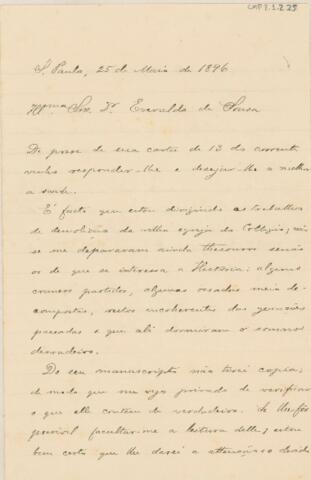 CMP 2.1.2.25
S. Paulo, 25 de Maio de 1896.
Illmo Snr. Dr. Everaldo de Sousa
De posse de sua carta de 13 do corrente
venho responder-lhe e desejar-lhe a melhor
a saude.
É facto que estou dirigindo os trabalhos
de demolição da velha egreja do Collegio; não
se me depararam ainda thesouros senão
os de que se interessa a Historia: alguns
craneos partidos, algumas ossadas meio de-
compostas, restos incoherentes das gerações
passadas e que ali dormiram o somno
derradeiro.
Do seu manuscripto não tirei copia,
de modo que me vejo privado de verificar
o que elle contem de verdadeiro. Se lhe fôr
possivel facultar-me a leitura delle, estou
bem certo que lhe darei a attenção devida